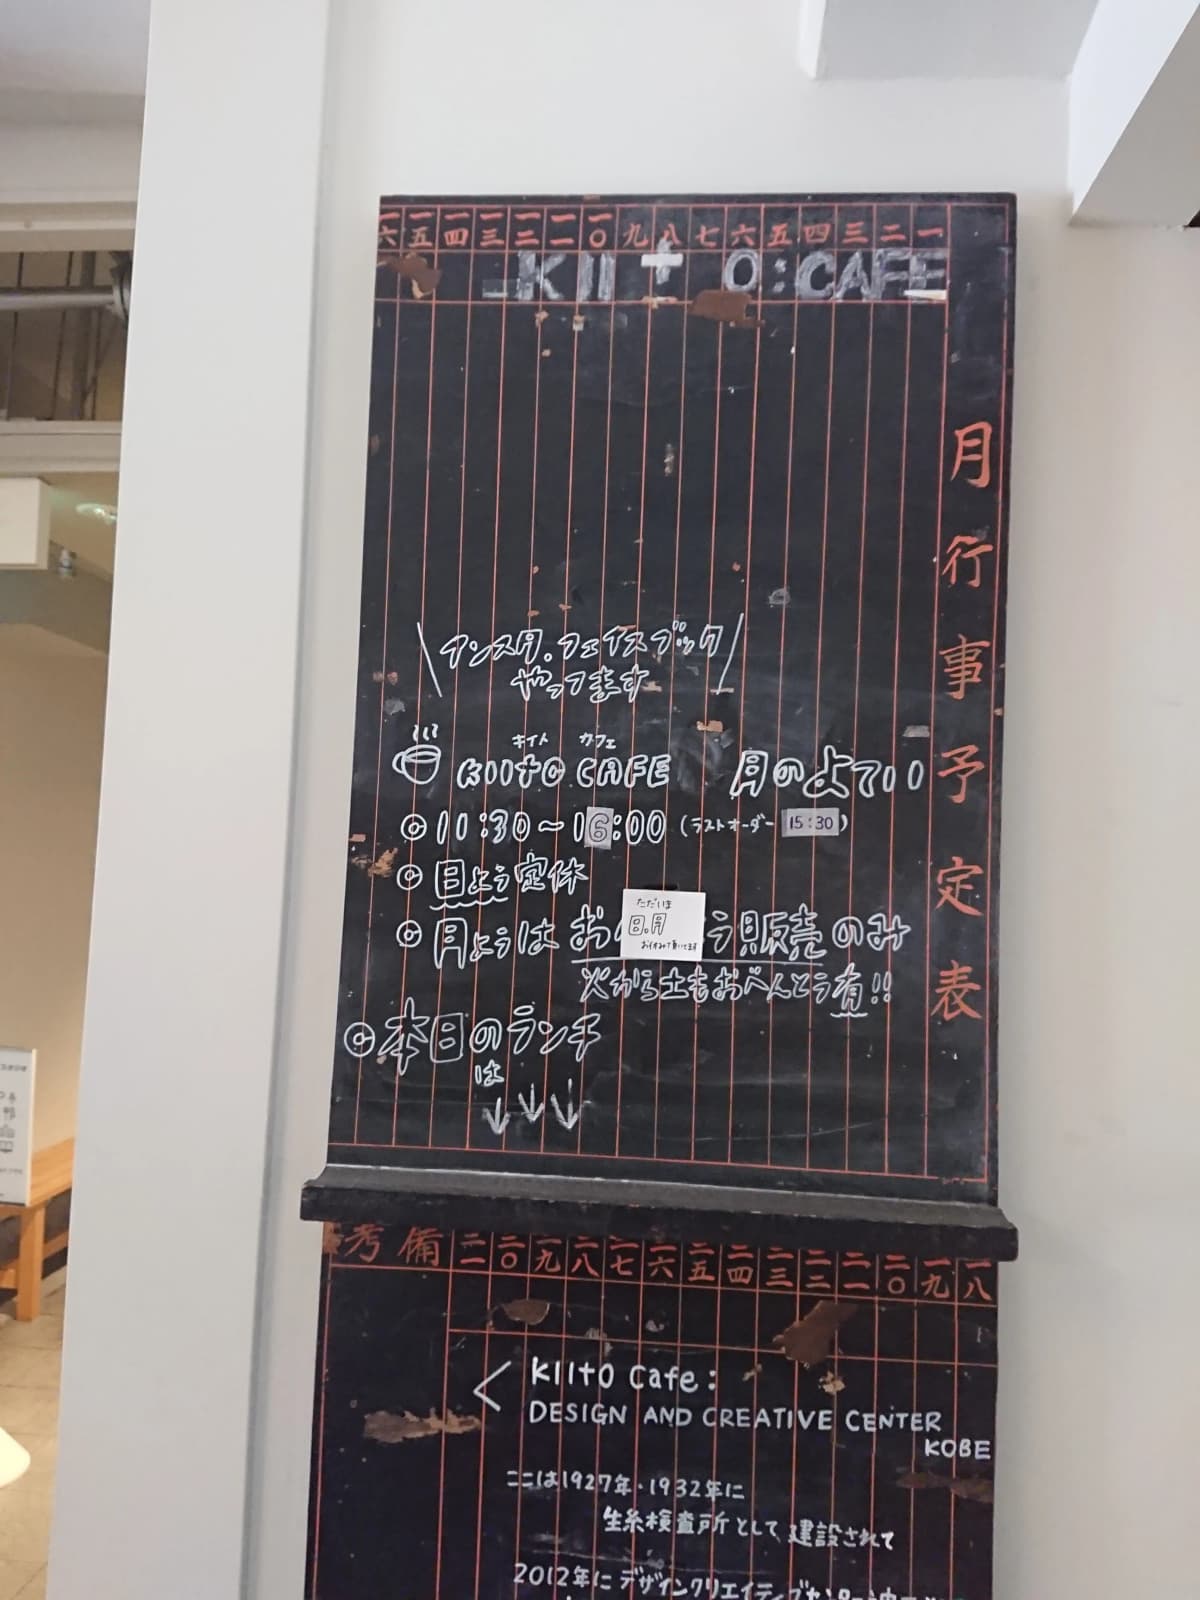 一六 一五 一四 一三 一二 一一 一〇 九 八 七 六 五 四 三 二 一
KIItO:CAFE
月行事予定表
インスタ。フェイスブック
やってます
キイト カフェ
KIItO CAFE 月のよてい
◎11:30~16:00 (ラストオーダー 15:30)
◎日よう定休
◎月ようは お う販売のみ
ただいま
日.月
お休みで頂いてます
火から土もおべんとう有!!
◎本日のランチ
は
↓↓↓
備考 二〇 一九 一八
KIItO Cafe:
DESIGN AND CREATIVE CENTER
KOBE
ここは1927年・1932年に
生糸検査所として、建設されて
2012年にデザインクリエイティブセンター